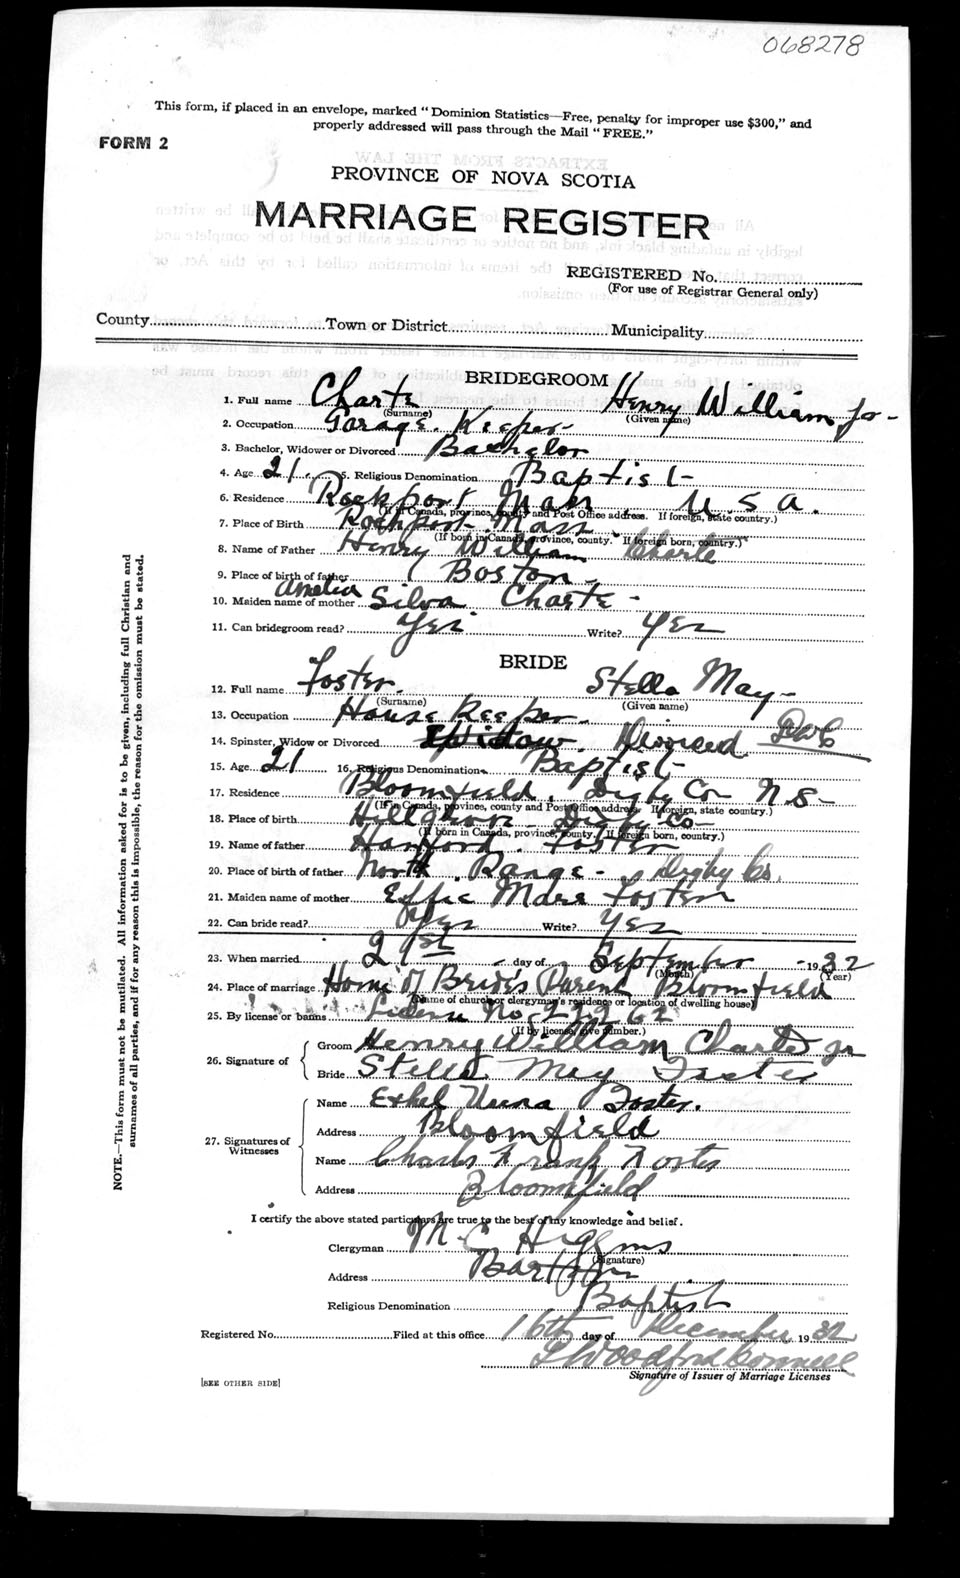 068278
This form, if placed in an envelope, marked "Dominion Statistics—Free, penalty for improper use $300," and
properly addressed will pass through the Mail "FREE."
FORM 2
PROVINCE OF NOVA SCOTIA
MARRIAGE REGISTER
REGISTERED No.
(For use of Registrar General only)
County Town or District Municipality
BRIDEGROOM
1. Full name Charte Henry William Jr-
(Surname) (Given name)
2. Occupation Garage Keeper-
3. Bachelor, Widower or Divorced Bachelor
4. Age 21 5. Religious Denomination Baptist-
6. Residence Rockport Mass U.S.A.
(If in Canada, province, county and Post Office address. If foreign, state country.)
7. Place of Birth Rockport Mass
(If born in Canada, province, county. If foreign born, country.)
8. Name of Father Henry William Charte
9. Place of birth of father Boston-
10. Maiden name of mother Amelia Silva Charte-
11. Can bridegroom read? Yes Write? Yes
BRIDE
12. Full name Foster. Stella May-
(Surname) (Given name)
13. Occupation House Keeper-
14. Spinster, Widow or Divorced Widow. Divorced
15. Age 21 16. Religious Denomination Baptist-
17. Residence Bloomfield. Digby Co N.S-
(If in Canada, province, county and Post Office address. If foreign, state country.)
18. Place of birth Hillgrove Digby Co-
(If born in Canada, province, county. If foreign born, country.)
19. Name of father Hanford. Foster
20. Place of birth of father North Range- Digby Co.
21. Maiden name of mother Effie Foster
22. Can bride read? Yes Write? Yes
23. When married 21st day of September -1932
(Month) (Year)
24. Place of marriage Home of Bride's Parent Bloomfield
(Name of church or clergyman's residence or location of dwelling house)
25. By license or banns License No- 22262
(If by license, give number.)
26. Signature of
Groom Henry William Charte Jr
Bride Stella May Foster
27. Signatures of
Witnesses
Name Ethel Foster.
Address Bloomfield
Name Charles
Address Bloomfield
I certify the above stated particulars are true to the best of my knowledge and belief.
Clergyman M C Higgins
(Signature)
Address Barton
Religious Denomination Baptist
Registered No. Filed at this office 16th day of December 1932
Signature of Issuer of Marriage Licenses
[SEE OTHER SIDE]
NOTE.—This form must not be mutilated. All information asked for is to be given, including full Christian and
surnames of all parties, and if for any reason this is impossible, the reason for the omission must be stated.